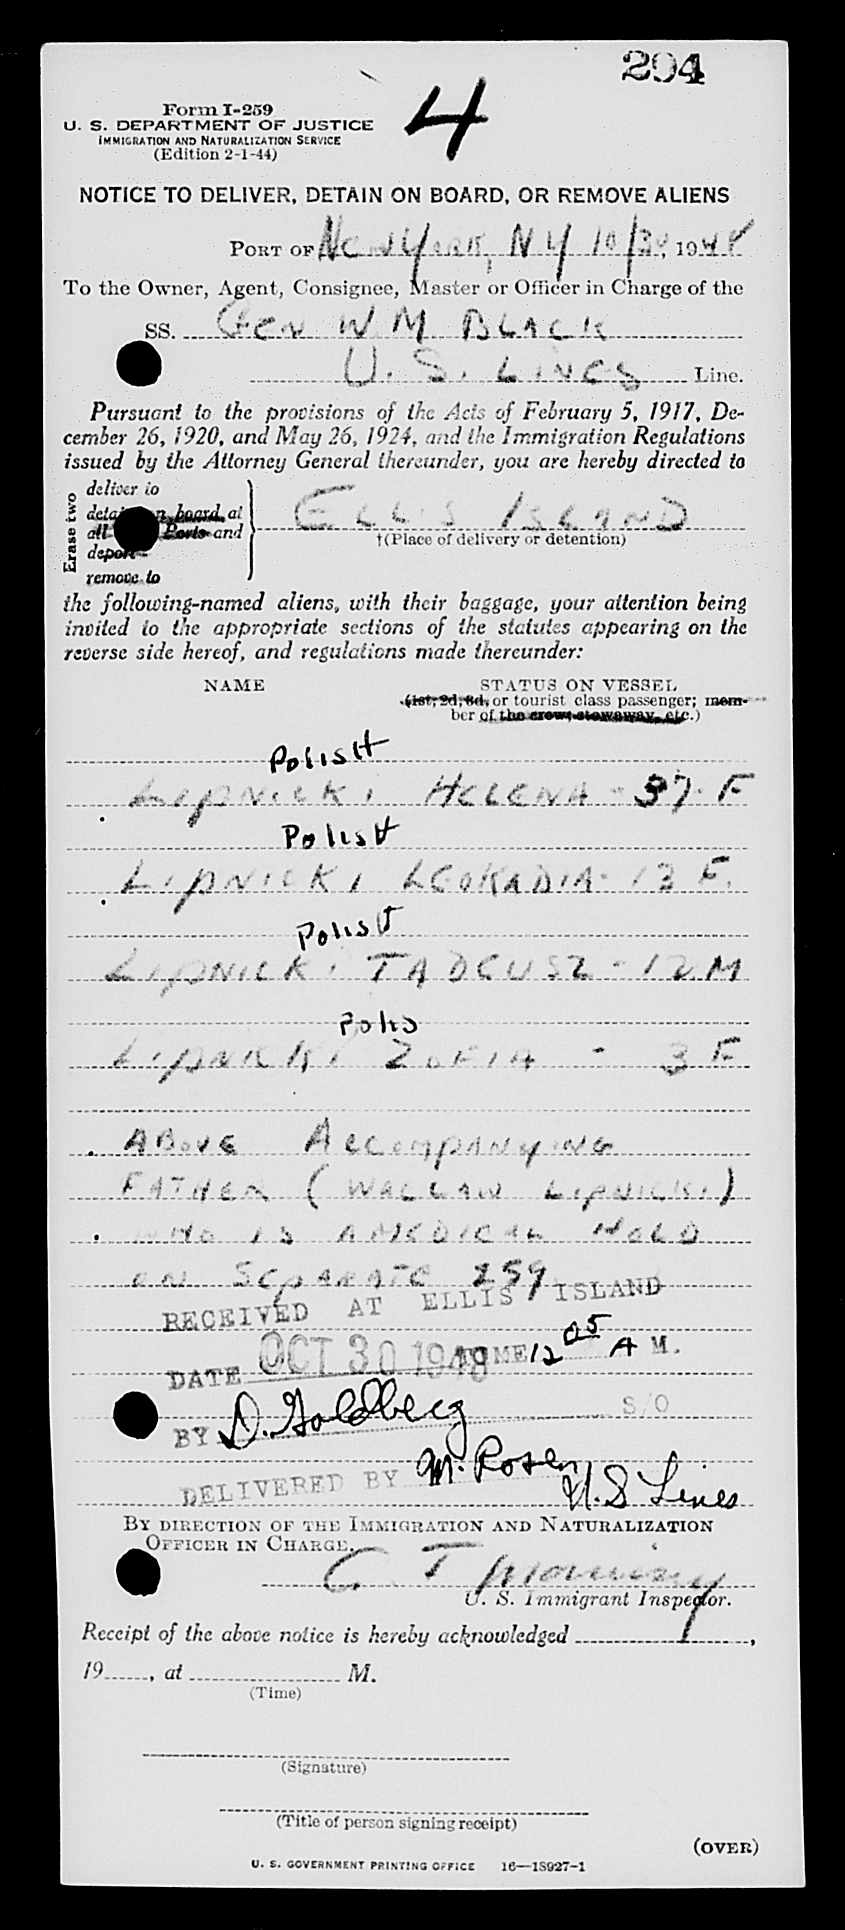 294
4
Form I-259
U. S. DEPARTMENT OF JUSTICE
IMMIGRATION AND NATURALIZATION SERVICE
(Edition 2-1-44)
NOTICE TO DELIVER, DETAIN ON BOARD, OR REMOVE ALIENS
PORT OF New York, NY 10/30, 1948
To the Owner, Agent, Consignee, Master or Officer in Charge of the
SS. GEN WM BLACK
U. S. LINES Line.
Pursuant to the provisions of the Acts of February 5, 1917, De-
cember 26, 1920, and May 26, 1924, and the Immigration Regulations
issued by the Attorney General thereunder, you are hereby directed to
Erase two
deliver to
on board at
all Ports and
deport
remove to
ELLIS ISLAND
†(Place of delivery or detention)
the following-named aliens, with their baggage, your attention being
invited to the appropriate sections of the statutes appearing on the
reverse side hereof, and regulations made thereunder:
NAME
STATUS ON VESSEL
(1st, 2d, 3d, or tourist class passenger; mem-
ber of the crew, stowaway, etc.)
POLISH
LIPNICKI HELENA - 37 - F
POLISH
LIPNICKI LEOKADIA - 13 F.
POLISH
LIPNICKI TADEUSZ - 12 M
LIPNICKI ZOFIA - 3 F
ABOVE ACCOMPANYING
FATHER (WACLAW LIPNICKI)
WHO IS A MEDICAL HOLD
ON SEPARATE 259
RECEIVED AT ELLIS ISLAND
DATE OCT 30 1948 TIME 12 05 A M.
BY D. Goldberg S/O
DELIVERED BY M. Rosen
U.S Lines
BY DIRECTION OF THE IMMIGRATION AND NATURALIZATION
OFFICER IN CHARGE.
C T
U. S. Immigrant Inspector.
Receipt of the above notice is hereby acknowledged ,
19 , at M.
(Time)
(Signature)
(Title of person signing receipt)
(OVER)
U. S. GOVERNMENT PRINTING OFFICE 16—18927-1